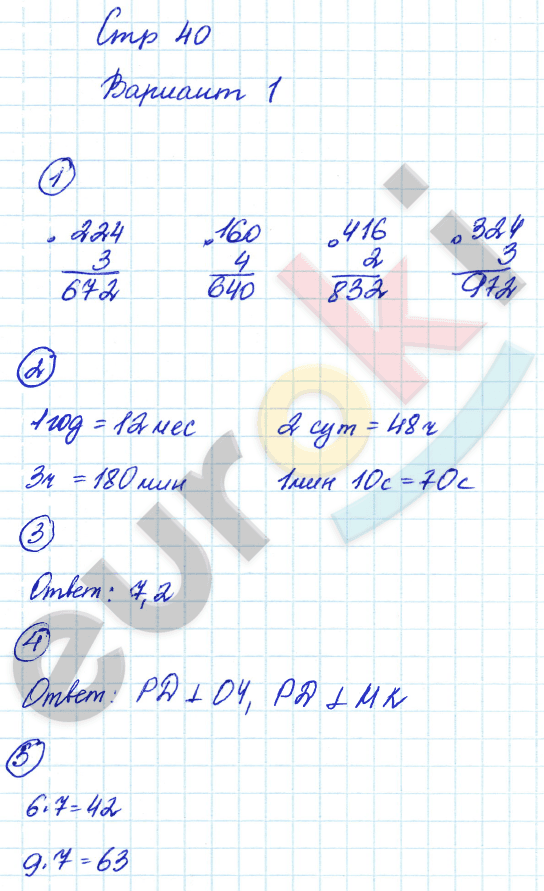 Стр 40
Вариант 1
1
· 224 · 160 · 416 · 324
3 4 2 3
672 640 832 972
2
1 год = 12 мес 2 сут = 48 ч
3ч = 180 мин 1 мин 10с = 70с
3
Ответ: 7, 2
4
Ответ: PD ⊥ OY, PD ⊥ MK
5
6·7=42
9·7=63
euroki